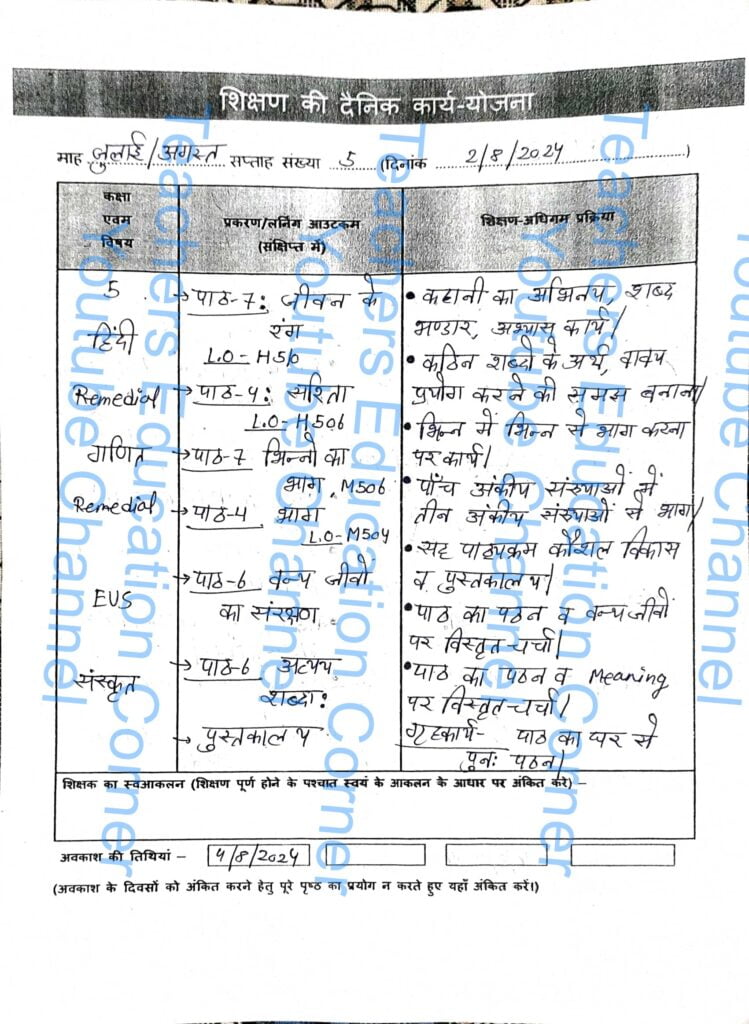 शिक्षण की दैनिक कार्य-योजना
माह जुलाई/अगस्त सप्ताह संख्या 5 (दिनांक 2/8/2024)
कक्षा
एवम
विषय
प्रकरण/लर्निंग आउटकम
(संक्षिप्त में)
शिक्षण-अधिगम प्रक्रिया
5
हिंदी
Remedial
गणित
Remedial
EVS
संस्कृत
→ पाठ-7: जीवन के
रंग
L.O-H510
→ पाठ-4: सरिता
L.O-H506
→ पाठ-7 भिन्नो का
भाग, M506
→ पाठ-4 भाग
L.O-M504
→ पाठ-6 वन्य जीवों
का संरक्षण
→ पाठ-6 अव्यय
शब्दा:
→ पुस्तकालय
• कहानी का अभिनय, शब्द
भण्डार, अभ्यास कार्य।
• कठिन शब्दो के अर्थ, वाक्य
प्रयोग करने की समझ बनाना।
• भिन्न में भिन्न से भाग करना
पर कार्य।
• पाँच अंकीय संख्याओं में
तीन अंकीय संख्याओं से भाग।
• सह पाठ्यक्रम कौशल विकास
व पुस्तकालय।
• पाठ का पठन व वन्य जीवों
पर विस्तृत चर्चा।
• पाठ का पठन व Meaning
पर विस्तृत चर्चा।
गृहकार्य- पाठ का घर से
पुनः पठन।
शिक्षक का स्वआकलन (शिक्षण पूर्ण होने के पश्चात स्वयं के आकलन के आधार पर अंकित करे) –
अवकाश की तिथियां – 4/8/2024
(अवकाश के दिवसों को अंकित करने हेतु पूरे पृष्ठ का प्रयोग न करते हुए यहाँ अंकित करें।)
Teachers Education Corner
Youtube Channel
Teachers Education Corner
Youtube Channel
Teachers Education Corner
Youtube Channel